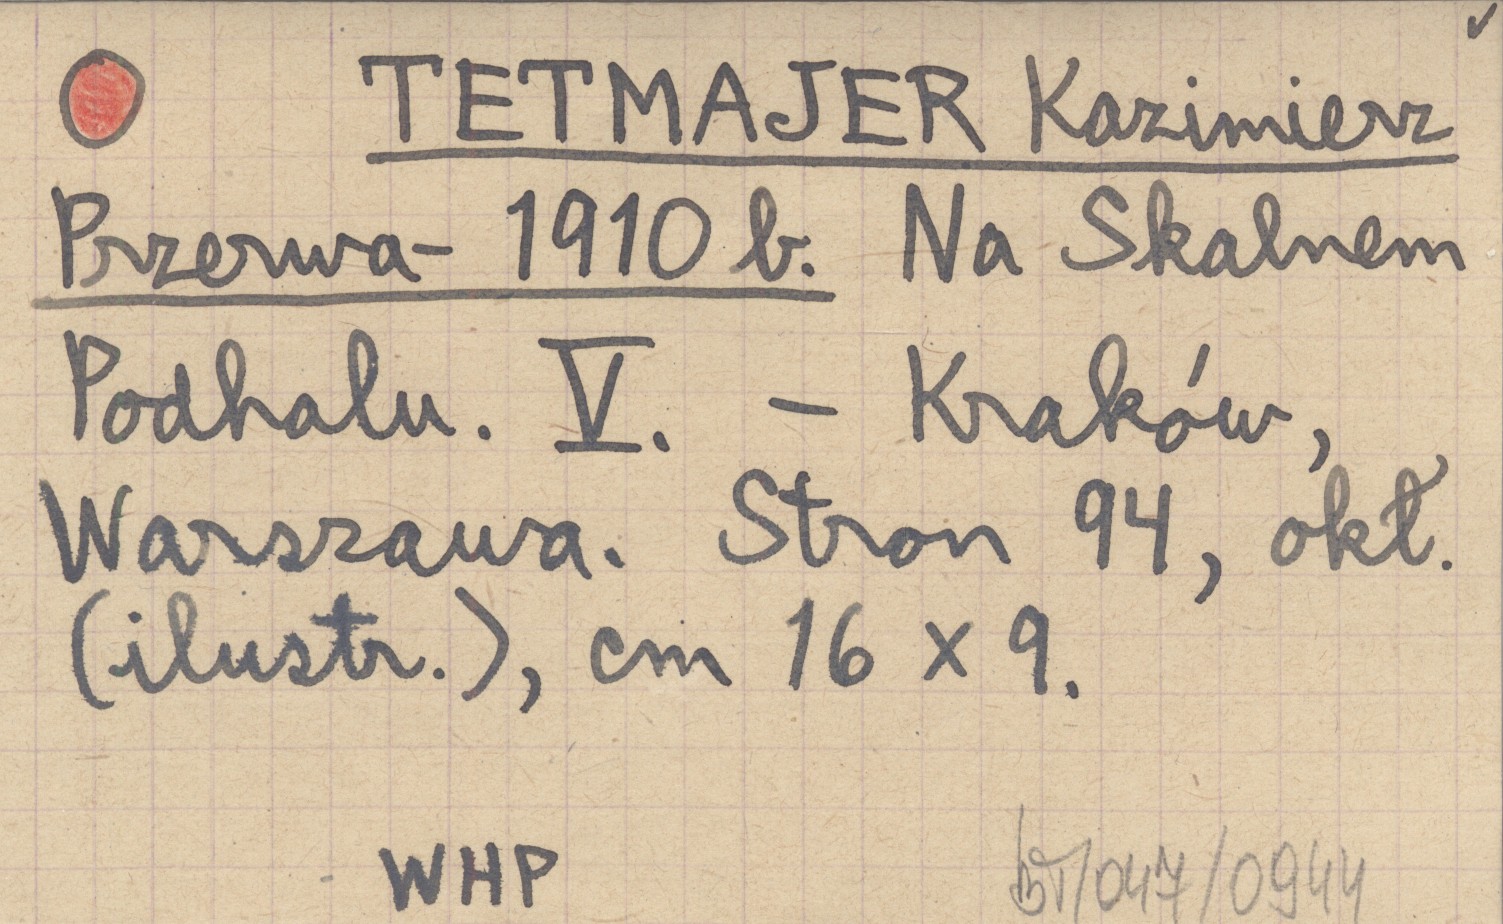 TETMAJER Kazimierz
Przerwa- 1910 b. Na Skalnem
Podhalu. V. - Kraków,
Warszawa. Stron 94, okł.
(ilustr.), cm 16 x 9.
WHP /047/0944